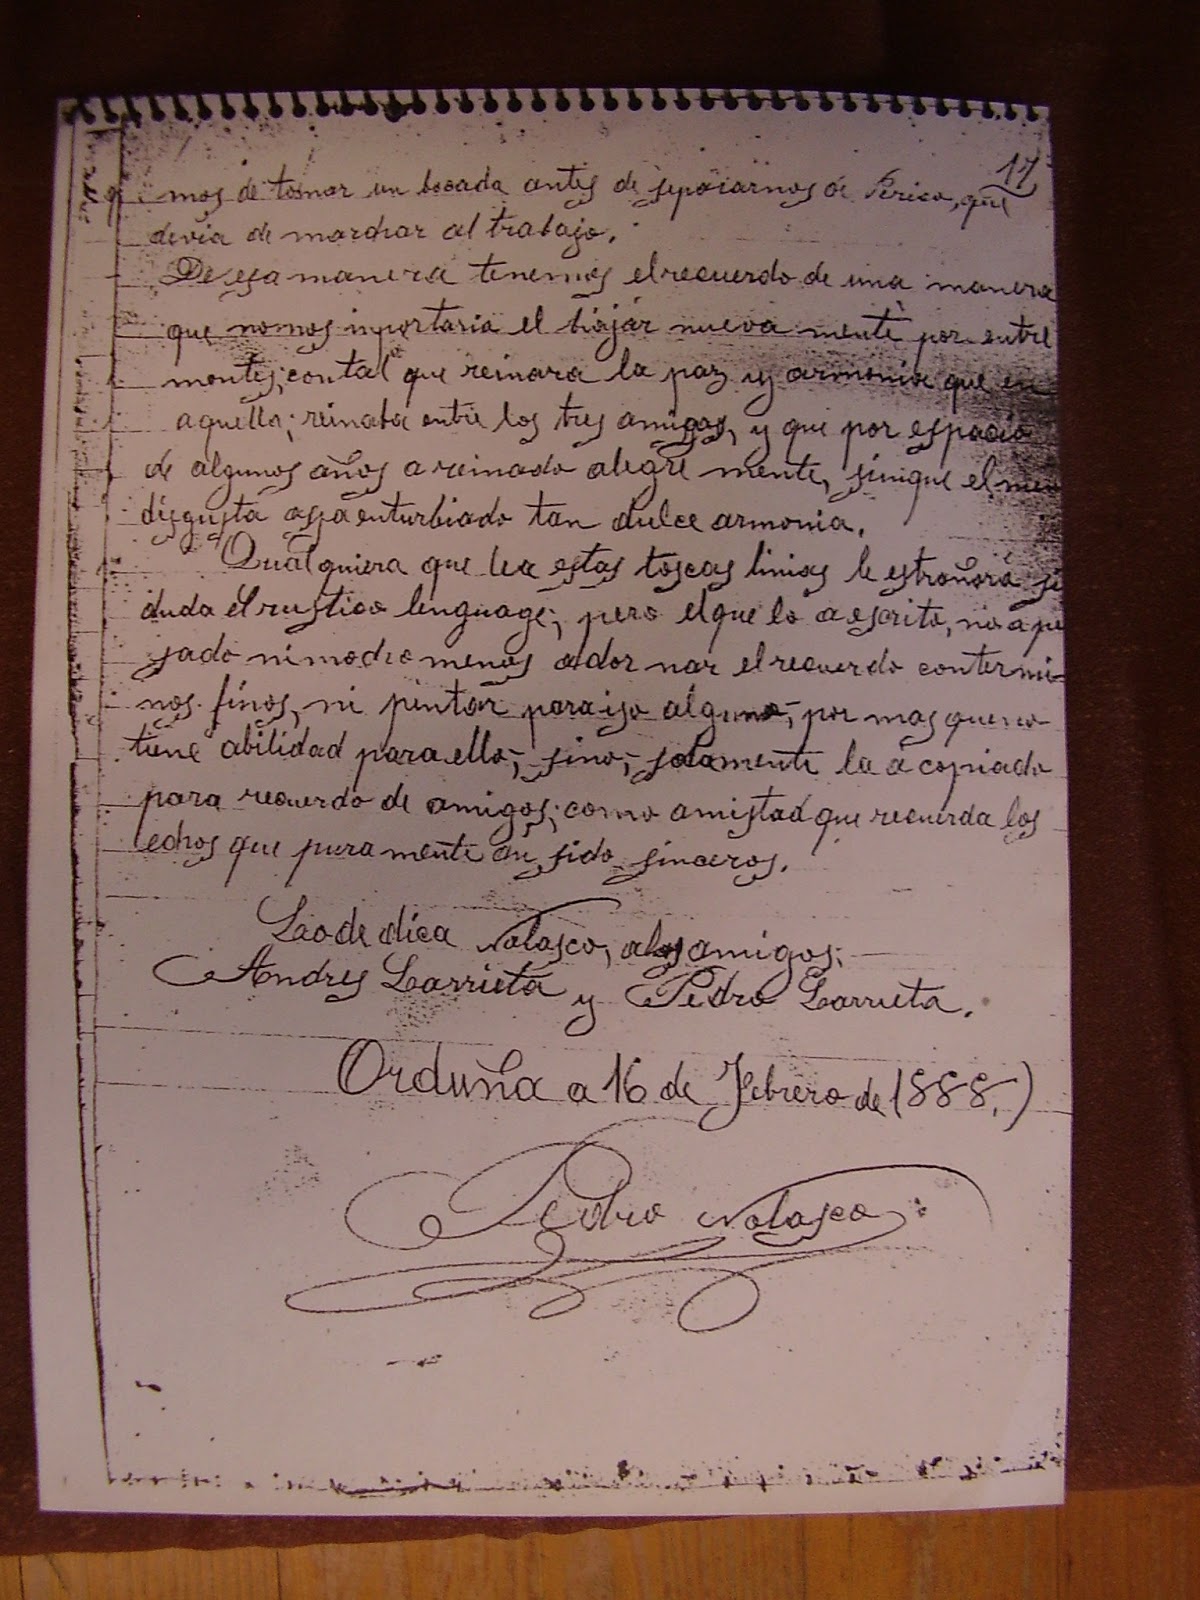 17
mos de tomar un bocada antes de separarnos de Perico, que
devia de marchar al trabajo.
De esa manera tenemos el recuerdo de una manera
que nomos inportaria el biajár nueva mente por entre
montes; contal que reinara la paz y armonia que en
aquello; reinaba entre los tres amigos, y que por espacio
de algunos años a reinado alegre mente, sinque el
disgusta aya enturbiado tan dulce armonia.
Qualquiera que lea estas toscas linias le estrañará si
duda el rustico lenguage; pero elque lo a escrito, no a pe
sado ni mocho menos ador nar el recuerdo contermi-
nos finos, ni pintar paraiso alguno; por mas que no
tiene abilidad para ello; sino; solamente la a copiado
para recuerdo de amigos; como amistad que recuerda los
echos que pura mente an sido sinceros.
Lo de dica Nolasco, a los amigos;
Andres Larrieta y Pedro Larrieta.
Orduña a 16 de Febrero de 1888.)
Pedro Nolasco